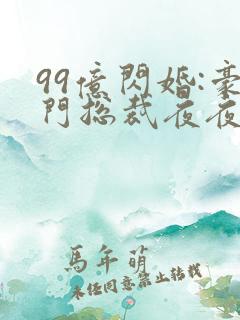 99億閃婚:豪
門總裁夜夜
馬年萌
未经同意禁止转载